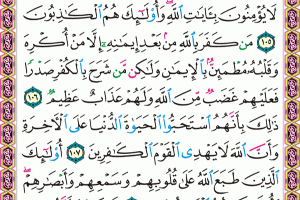 لَا يُؤْمِنُونَ بِـَٔايَٰتِ ٱللَّهِ ۖ وَأُو۟لَٰٓئِكَ هُمُ ٱلْكَٰذِبُونَ
١٠٥ مَن كَفَرَ بِٱللَّهِ مِنۢ بَعْدِ إِيمَٰنِهِۦٓ إِلَّا مَنْ أُكْرِهَ
وَقَلْبُهُۥ مُطْمَئِنٌّۢ بِٱلْإِيمَٰنِ وَلَٰكِن مَّن شَرَحَ بِٱلْكُفْرِ صَدْرًا
فَعَلَيْهِمْ غَضَبٌ مِّنَ ٱللَّهِ وَلَهُمْ عَذَابٌ عَظِيمٌ ١٠٦
ذَٰلِكَ بِأَنَّهُمُ ٱسْتَحَبُّوا۟ ٱلْحَيَوٰةَ ٱلدُّنْيَا عَلَى ٱلْءَاخِرَةِ
وَأَنَّ ٱللَّهَ لَا يَهْدِى ٱلْقَوْمَ ٱلْكَٰفِرِينَ ١٠٧ أُو۟لَٰٓئِكَ
ٱلَّذِينَ طَبَعَ ٱللَّهُ عَلَىٰ قُلُوبِهِمْ وَسَمْعِهِمْ وَأَبْصَٰرِهِمْ ۖ